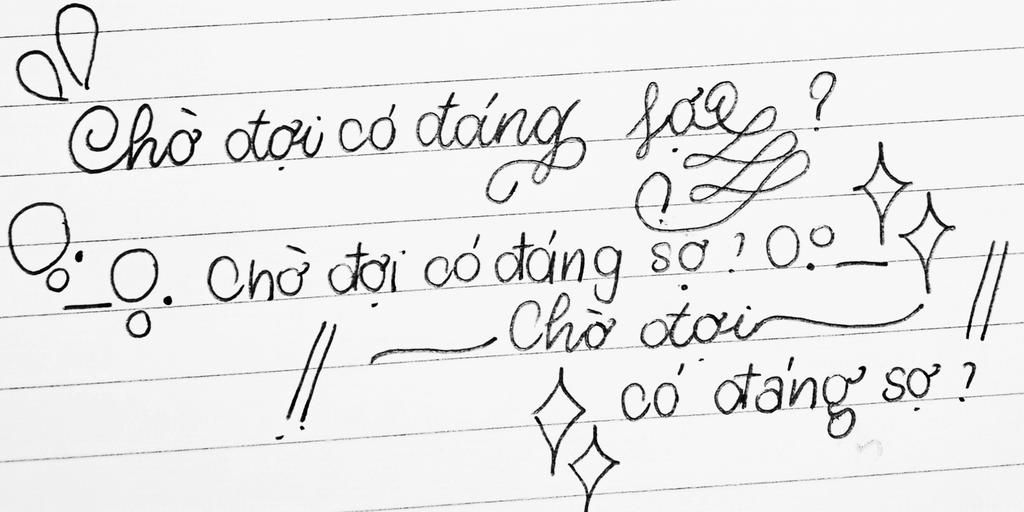 Chờ đợi có đáng sợ ?
Chờ đợi có đáng sợ ?
Chờ đợi
có đáng sợ ?